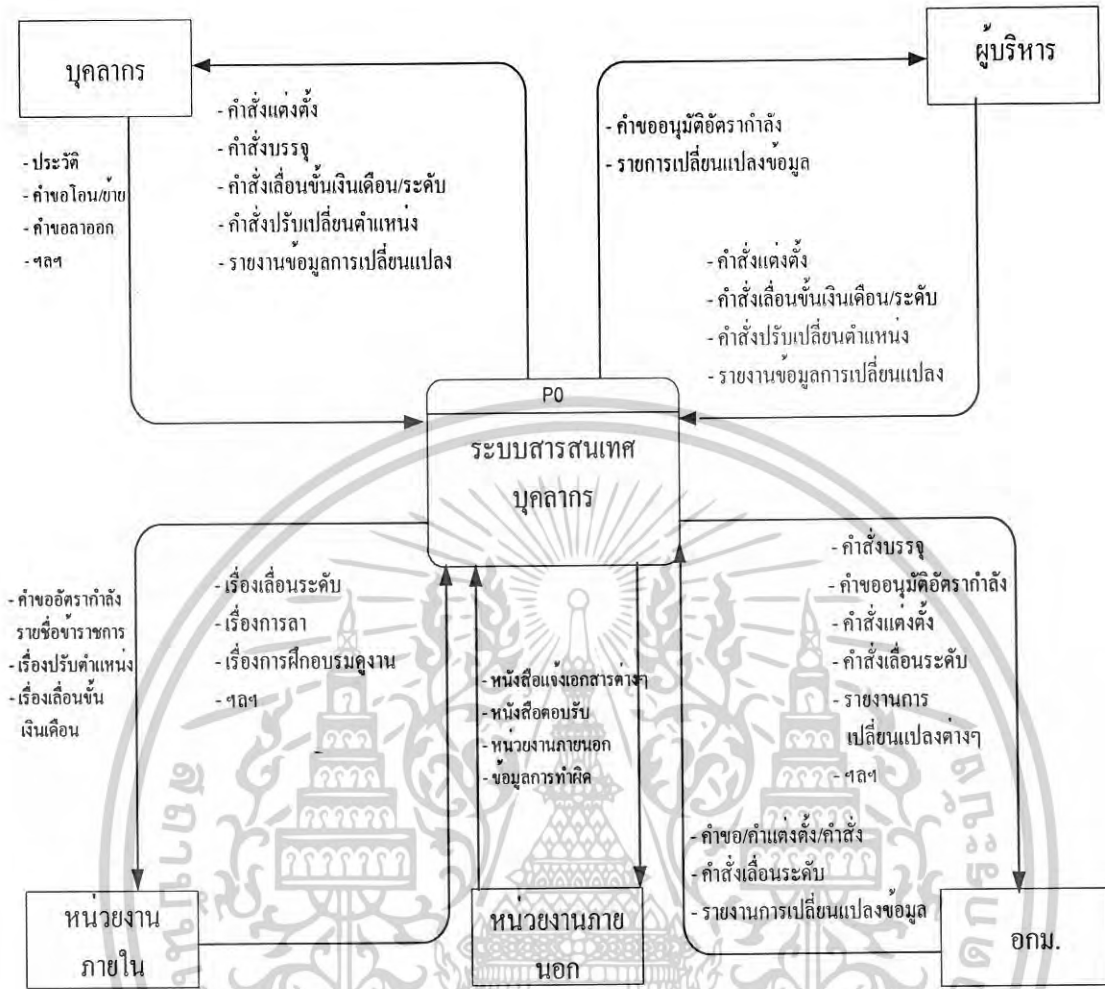 บุคลากร
ผู้บริหาร
- คำสั่งแต่งตั้ง
- คำสั่งบรรจุ
- คำสั่งเลื่อนขั้นเงินเดือน/ระดับ
- คำสั่งปรับเปลี่ยนตำแหน่ง
- รายงานข้อมูลการเปลี่ยนแปลง
- ประวัติ
- คำขอโอน/ย้าย
- คำขอลาออก
- ฯลฯ
- คำขออนุมัติอัตรากำลัง
- รายการเปลี่ยนแปลงข้อมูล
- คำสั่งแต่งตั้ง
- คำสั่งเลื่อนขั้นเงินเดือน/ระดับ
- คำสั่งปรับเปลี่ยนตำแหน่ง
- รายงานข้อมูลการเปลี่ยนแปลง
P0
ระบบสารสนเทศ
บุคลากร
- คำขออัตรากำลัง
รายชื่อข้าราชการ
- เรื่องปรับตำแหน่ง
- เรื่องเลื่อนขั้น
เงินเดือน
- เรื่องเลื่อนระดับ
- เรื่องการลา
- เรื่องการฝึกอบรมดูงาน
- ฯลฯ
- หนังสือแจ้งเอกสารต่างๆ
- หนังสือตอบรับ
- หน่วยงานภายนอก
- ข้อมูลการทำผิด
- คำสั่งบรรจุ
- คำขออนุมัติอัตรากำลัง
- คำสั่งแต่งตั้ง
- คำสั่งเลื่อนระดับ
- รายงานการ
เปลี่ยนแปลงต่างๆ
- ฯลฯ
- คำขอ/คำแต่งตั้ง/คำสั่ง
- คำสั่งเลื่อนระดับ
- รายงานการเปลี่ยนแปลงข้อมูล
หน่วยงาน
ภายใน
หน่วยงานภาย
นอก
อกม.